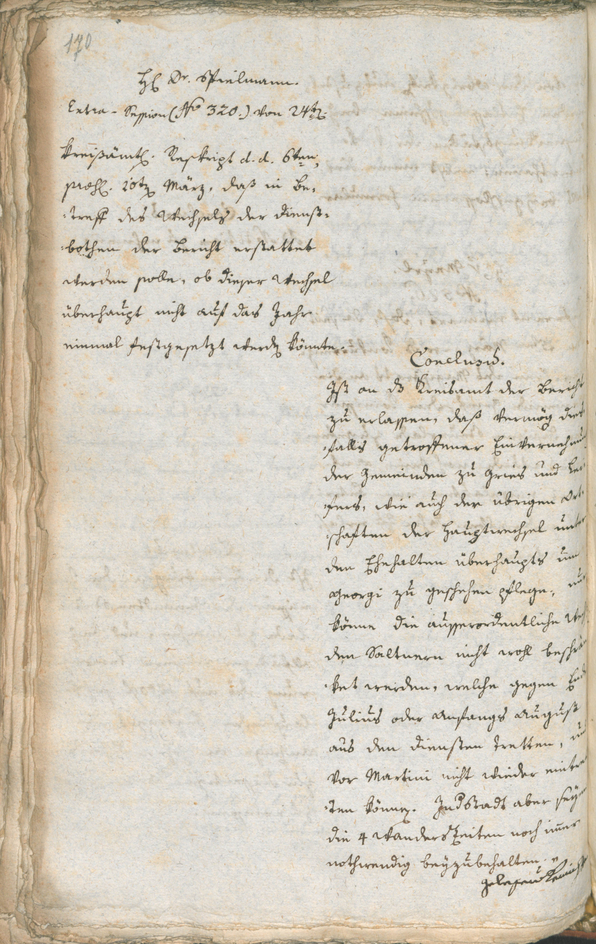 170
H: Dr. Spielmann.
Extra-Session (No 320.) von 24ten
Kreißämtl. Reskript d. d. 6ten,
præs. 10ten März, daß in Be,
treff des Wechsels der Dienst-
bothen der Bericht erstattet
werden solle, ob dieser Wechsel
überhaupt nicht auf das Jahr
einmal festgesetzt werden könnte.
Conclusum.
Ist an das Kreisamt der Bericht
zu erlassen, daß vermög dies
falls getroffener Einvernehmung
der Gemeinden zu Gries und Lei,
fers, wie auch der übrigen Ort,
schaften der Hauptwechsel unter
den Ehehalten überhaupts um
Georgi zu geschehen pflege,
könne die ausserordentliche
den Saltnern nicht wohl beschrän
ket werden, welche gegen End
Julius oder Anfangs August
aus den Diensten tretten, und
vor Martini nicht wieder eintre
ten können. In der Stadt aber seyen
die 4 Wanders Zeiten noch immer
nothwendig beyzubehalten
gelesen